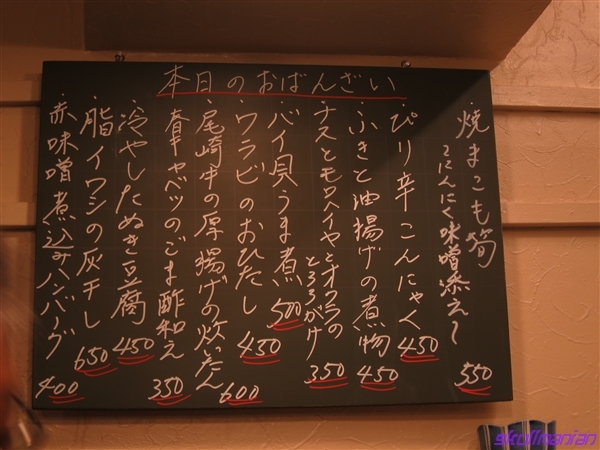 本日のおばんざい
・焼まこも筍
〜にんにく味噌添え〜
550
・ぴり辛こんにゃく
450
・ふきと油揚げの煮物
450
・ナスとモロヘイヤとオクラの
とろろがけ
350
・バイ貝うま煮
500
・ワラビのおひたし
450
・尾崎中の厚揚げの炊いたん
600
・春キャベツのごま酢和え
350
・冷やしたぬき豆腐
450
・脂イワシの灰干し
650
・赤味噌煮込みハンバーグ
400
skullmanian